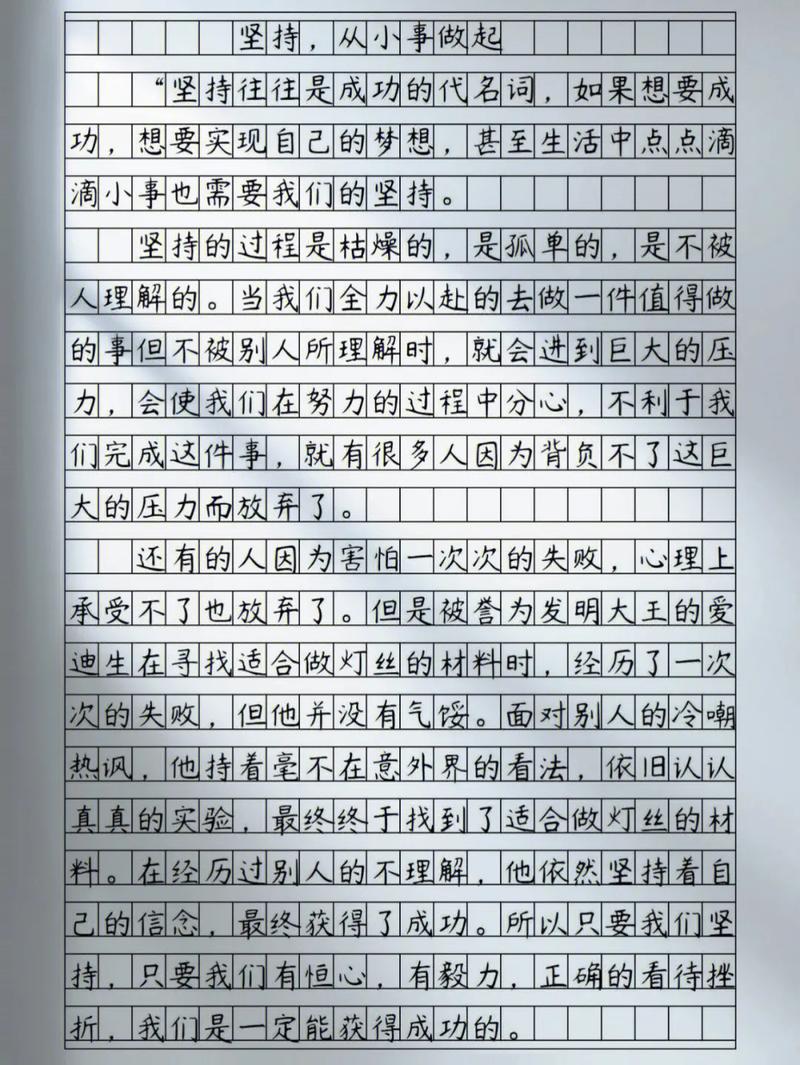 坚持，从小事做起
“坚持往往是成功的代名词，如果想要成
功，想要实现自己的梦想，甚至生活中点点滴
滴小事也需要我们的坚持。
坚持的过程是枯燥的，是孤单的，是不被
人理解的。当我们全力以赴的去做一件值得做
的事但不被别人所理解时，就会进到巨大的压
力，会使我们在努力的过程中分心，不利于我
们完成这件事，就有很多人因为背负不了这巨
大的压力而放弃了。
还有的人因为害怕一次次的失败，心理上
承受不了也放弃了。但是被誉为发明大王的爱
迪生在寻找适合做灯丝的材料时，经历了一次
次的失败，但他并没有气馁。面对别人的冷嘲
热讽，他持着毫不在意外界的看法，依旧认认
真真的实验，最终终于找到了适合做灯丝的材
料。在经历过别人的不理解，他依然坚持着自
己的信念，最终获得了成功。所以只要我们坚
持，只要我们有恒心，有毅力，正确的看待挫
折，我们是一定能获得成功的。